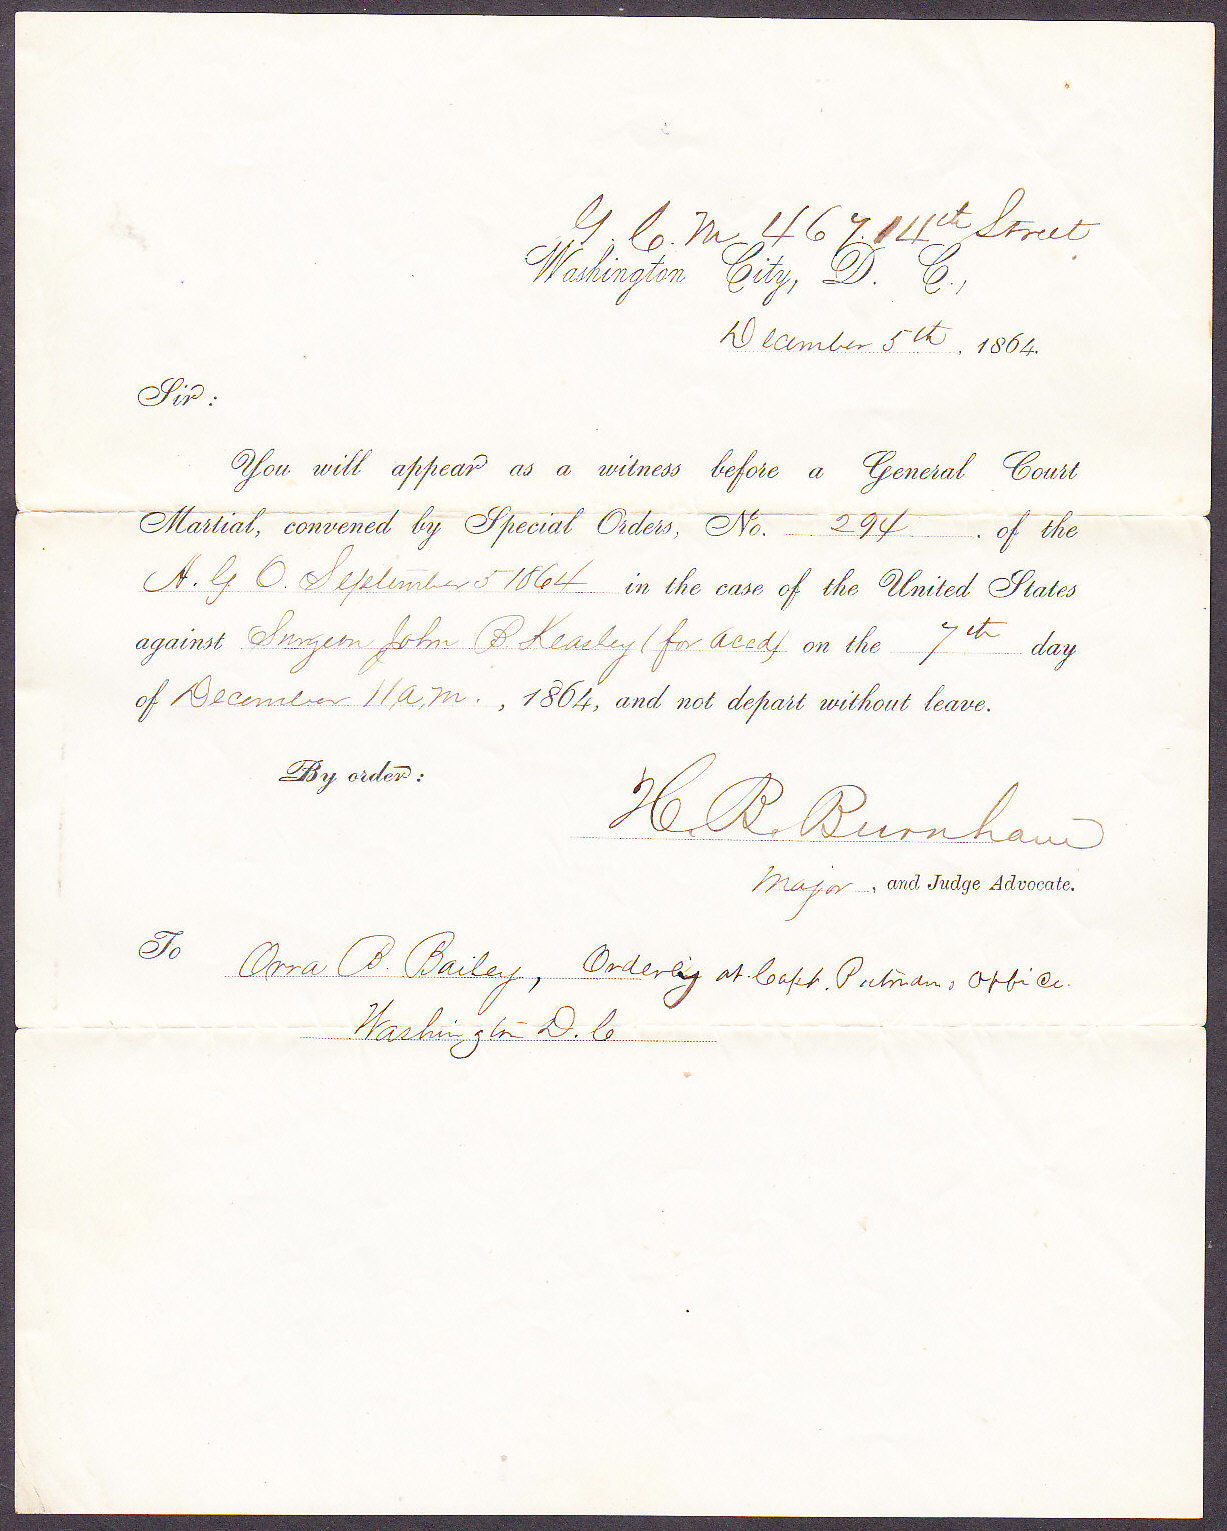 G. C. M. 467. 14th Street
Washington City, D. C.,
December 5th, 1864.
Sir:
You will appear as a witness before a General Court
Martial, convened by Special Orders, No. 294. of the
A. G O. September 5 1864 in the case of the United States
against Surgeon John B Keasley (for accd) on the 7th day
of December 11 a.m., 1864, and not depart without leave.
By order:
H. B. Burnham
Major, and Judge Advocate.
To Orra B. Bailey, Orderly at Capt. Putnams office.
Washington D. C